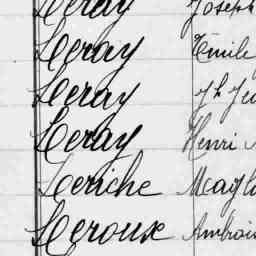 Leray Joseph
Leray Emile
Leray Jh
Leray Henri
Leriche
Leroux